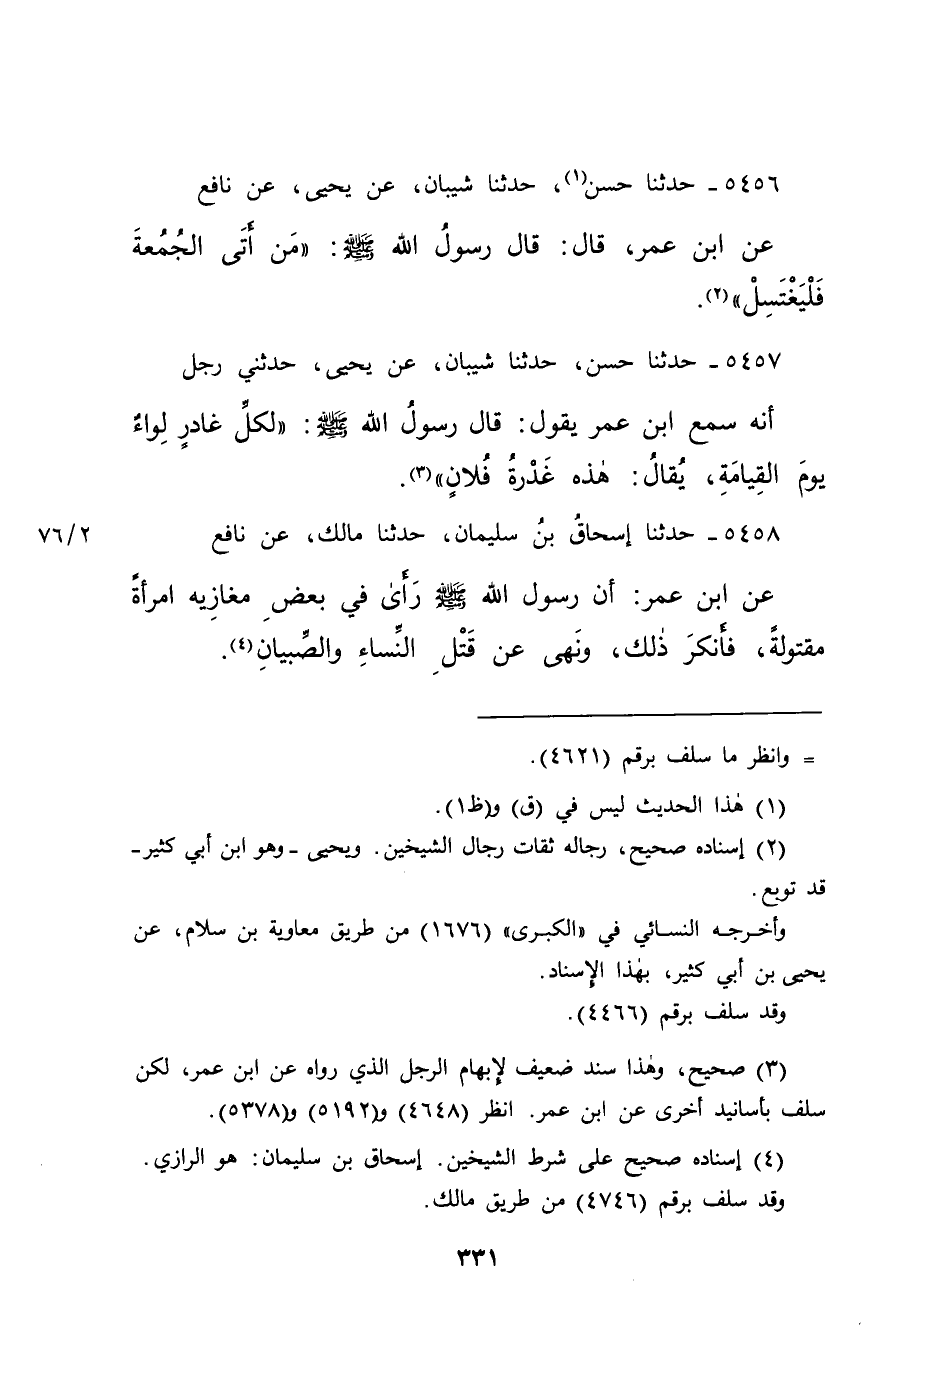 ٥٤٥٦ ـ حدثنا حسن(١)، حدثنا شيبان، عن يحيى، عن نافع
عن ابن عمر، قال: قال رسولُ الله ﷺ: «مَن أَتَى الجُمُعةَ
فَلْيَغْتَسِلْ»(٢).
٥٤٥٧ ـ حدثنا حسن، حدثنا شيبان، عن يحيى، حدثني رجل
أنه سمع ابن عمر يقول: قال رسولُ الله ﷺ: «لكلِّ غادرٍ لِواءٌ
يومَ القِيامَةِ، يُقالُ: هٰذه غَدْرةُ فُلانٍ»(٣).
٥٤٥٨ ـ حدثنا إسحاقُ بنُ سليمان، حدثنا مالك، عن نافع
٧٦/٢
عن ابن عمر: أن رسول الله ﷺ رَأَىٰ في بعضِ مغازِيه امرأةً
مقتولةً، فأَنكرَ ذٰلك، ونَهى عن قَتْلِ النِّساءِ والصِّبيانِ(٤).
= وانظر ما سلف برقم (٤٦٢١).
(١) هٰذا الحديث ليس في (ق) و(ظ١).
(٢) إسناده صحيح، رجاله ثقات رجال الشيخين. ويحيى ـ وهو ابن أبي كثير ـ
قد توبع.
وأخرجه النسائي في «الكبرى» (١٦٧٦) من طريق معاوية بن سلام، عن
يحيى بن أبي كثير، بهٰذا الإسناد.
وقد سلف برقم (٤٤٦٦).
(٣) صحيح، وهٰذا سند ضعيف لإبهام الرجل الذي رواه عن ابن عمر، لكن
سلف بأسانيد أخرى عن ابن عمر. انظر (٤٦٤٨) و(٥١٩٢) و(٥٣٧٨).
(٤) إسناده صحيح على شرط الشيخين. إسحاق بن سليمان: هو الرازي.
وقد سلف برقم (٤٧٤٦) من طريق مالك.
٣٣١